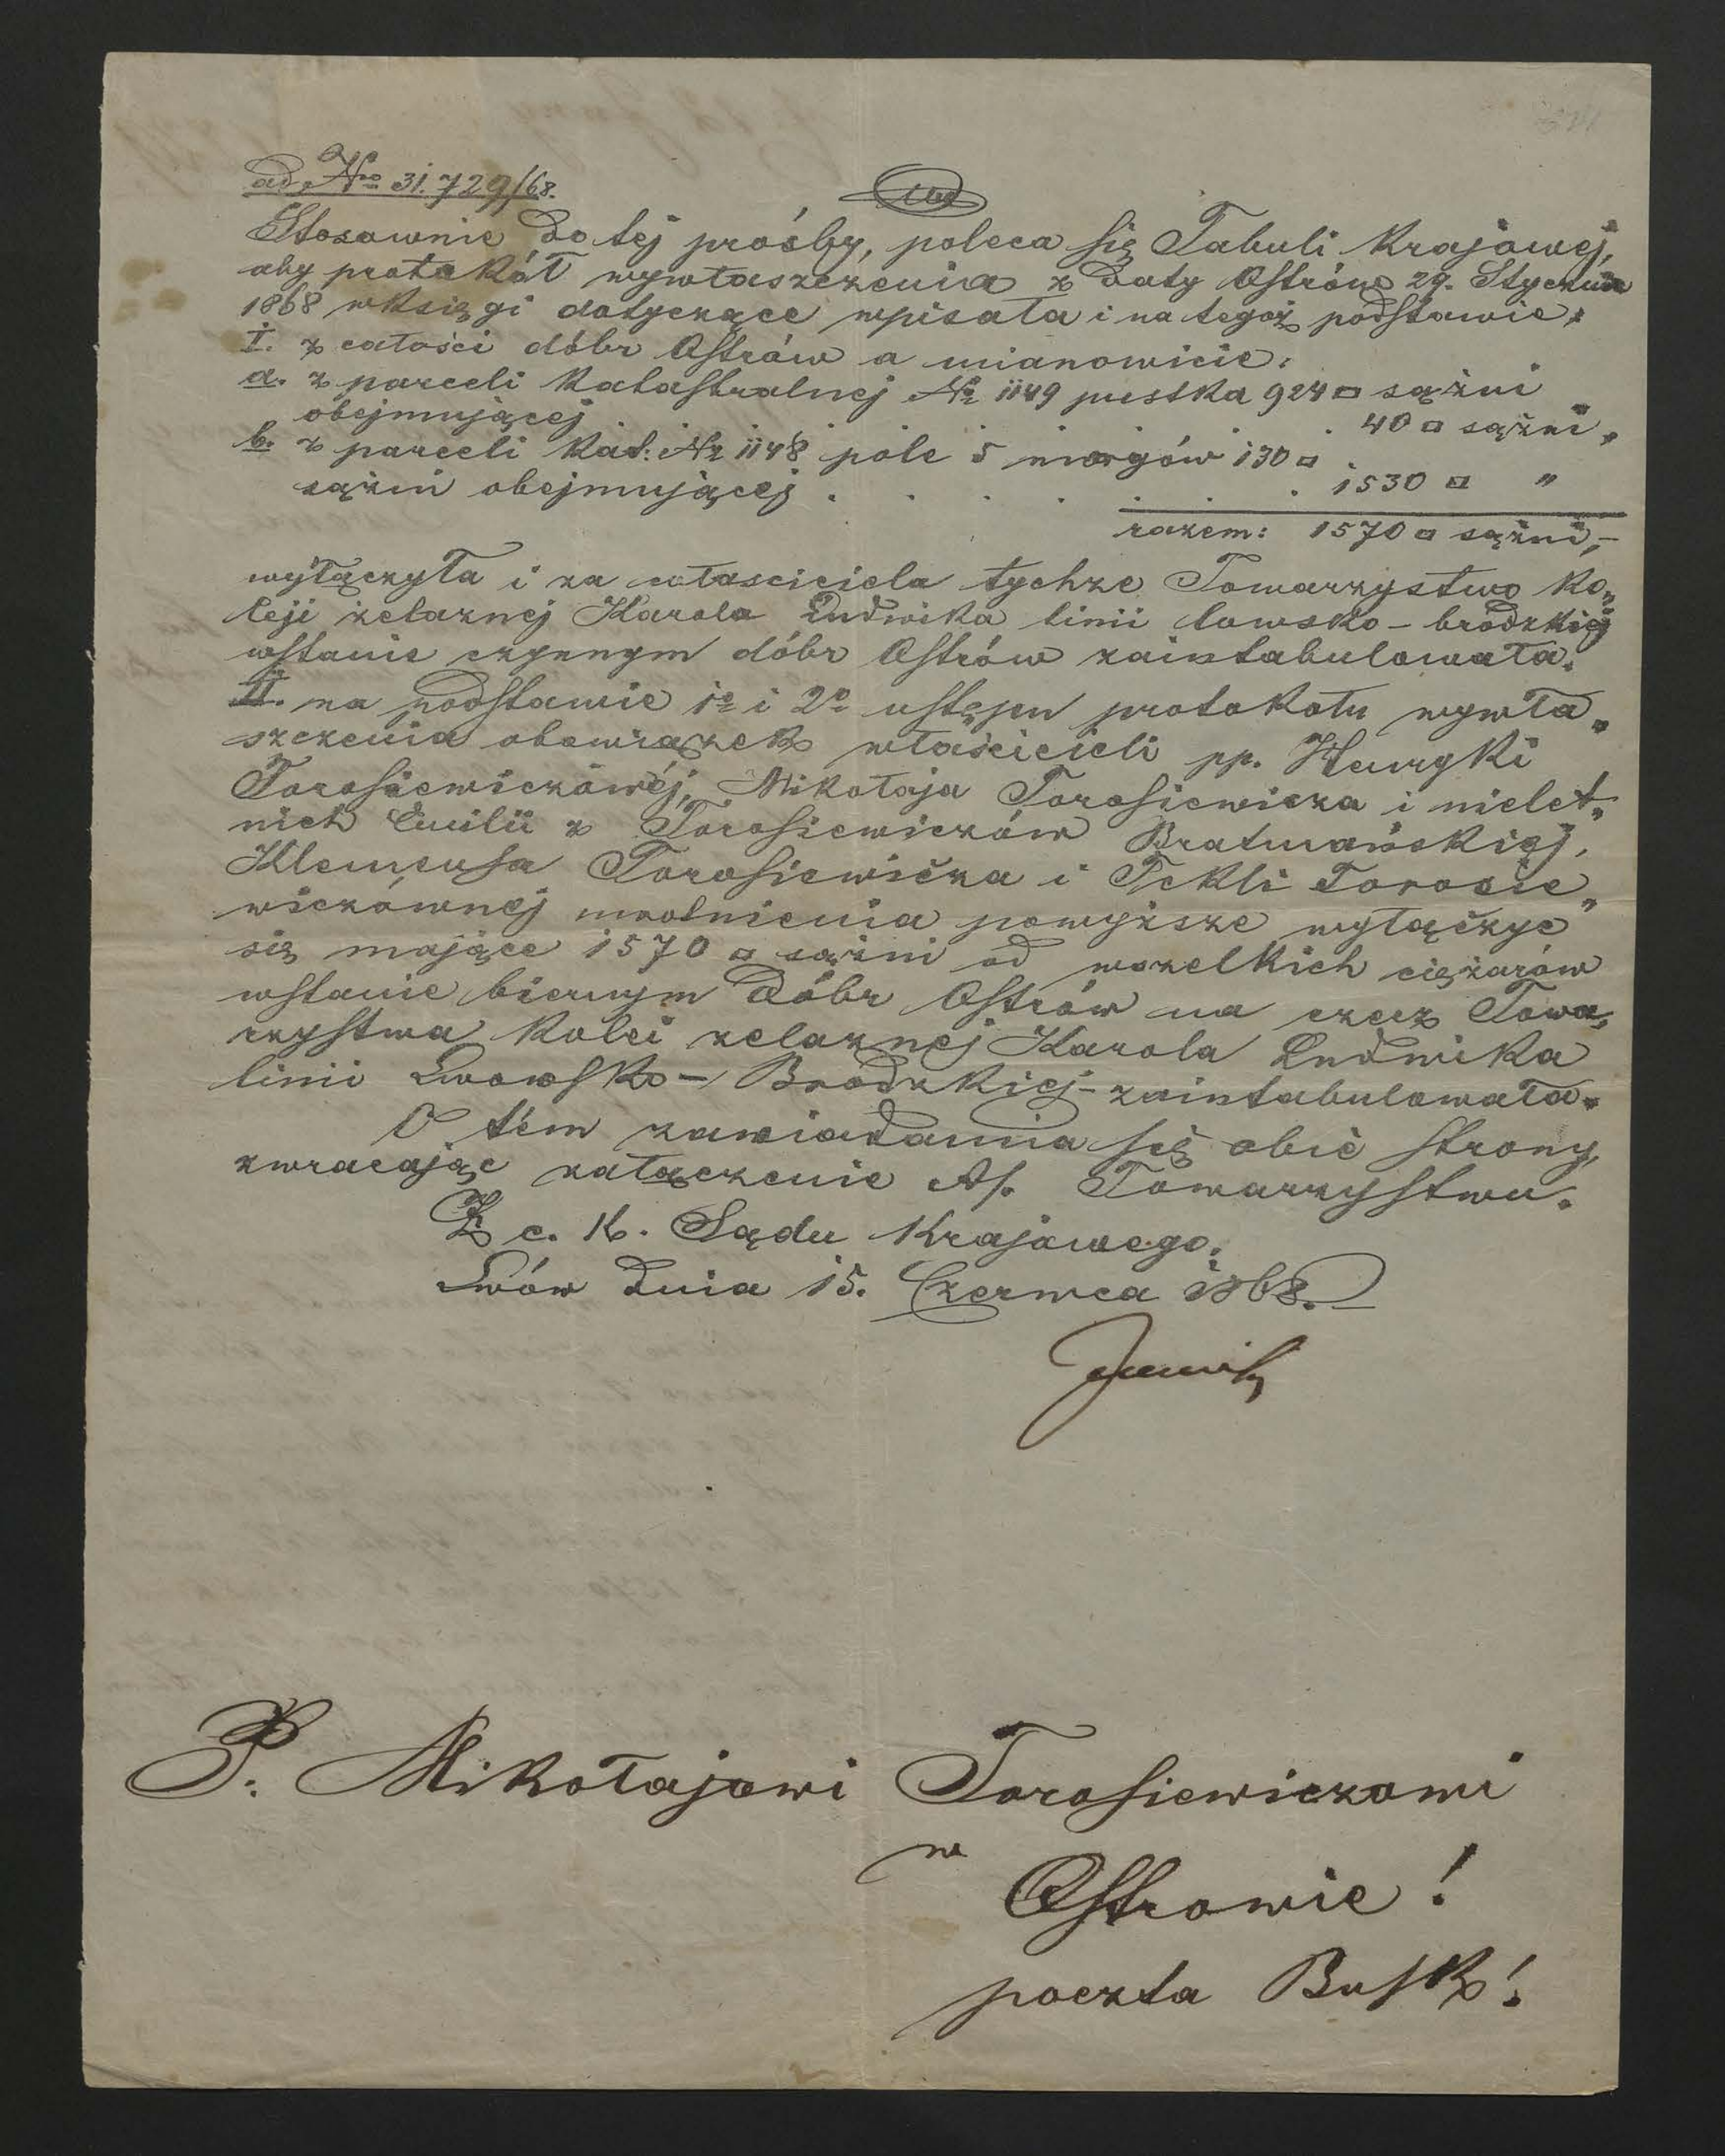 ad Nro 31.729/68.
Stosownie do tej prośby, poleca się Tabuli Krajowej,
aby protokół wywłaszczenia z daty Ostrów 29. Stycznia
1868 wksięgi dotyczące wpisała i na tegoż podstawie,
I. z całości dóbr Ostrów a mianowicie:
a. z parceli katastralnej No 1149 pustka 924 □ sążni
obejmującej . 40 □ sążni,
b. z parceli kat: Nr 1148 pole 5 morgów 130 □
sążni obejmującej . . . . . . . 1530 □ "
razem: 1570 □ sążni,-
wyłączyła i za właściciela tychże Towarzystwo Ko„
leji żelaznej Karola Ludwika linii lwowsko-brodzkiej
wstanie czynnym dóbr Ostrów zaintabulowała.
II. na podstawie 1o i 2o ustępu protokołu wywła„
szczenia obowiązek właścicieli pp. Henryki
Torosiewiczowéj, Mikołaja Torosiewicza i nielet„
nich Emilii z Torosiewiczów Bratmańskiej,
Klemensa Torosiewicza i Tekli Torosie„
wiczównej uwolnienia powyższe wyłączyć
się mające 1570 □ sążni od wszelkich ciężarów
wstanie biernym dóbr Ostrów na rzecz Towa„
rzystwa kolei żelaznej Karola Ludwika
linii Lwowsko-Brodzkiej- zaintabulowała.
O tém zawiadamia się obie strony,
zwracając załączenie A/. Towarzystwu.
Z c. k. Sądu Krajowego.
Lwów dnia 15. Czerwca 1868.
P. Mikołajowi Torosiewiczowi
w
Ostrowie!
poczta Busk!